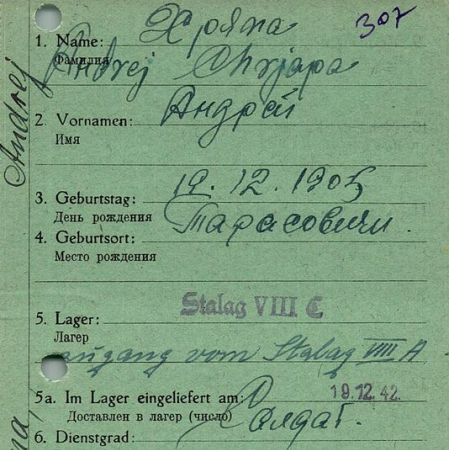 307
1. Name: Хряпа
Фамилия Andrej Chrjapa
2. Vornamen: Андрей
Имя
3. Geburtstag: 19.12.1905
День рождения
4. Geburtsort: Тарасовичи.
Место рождения
Stalag VIII C
5. Lager:
Лагер
zugang vom Stalag VIII A
5a. Im Lager eingeliefert am: 19.12.42.
Доставлен в лагер (число)
6. Dienstgrad: Солдат.
Andrej